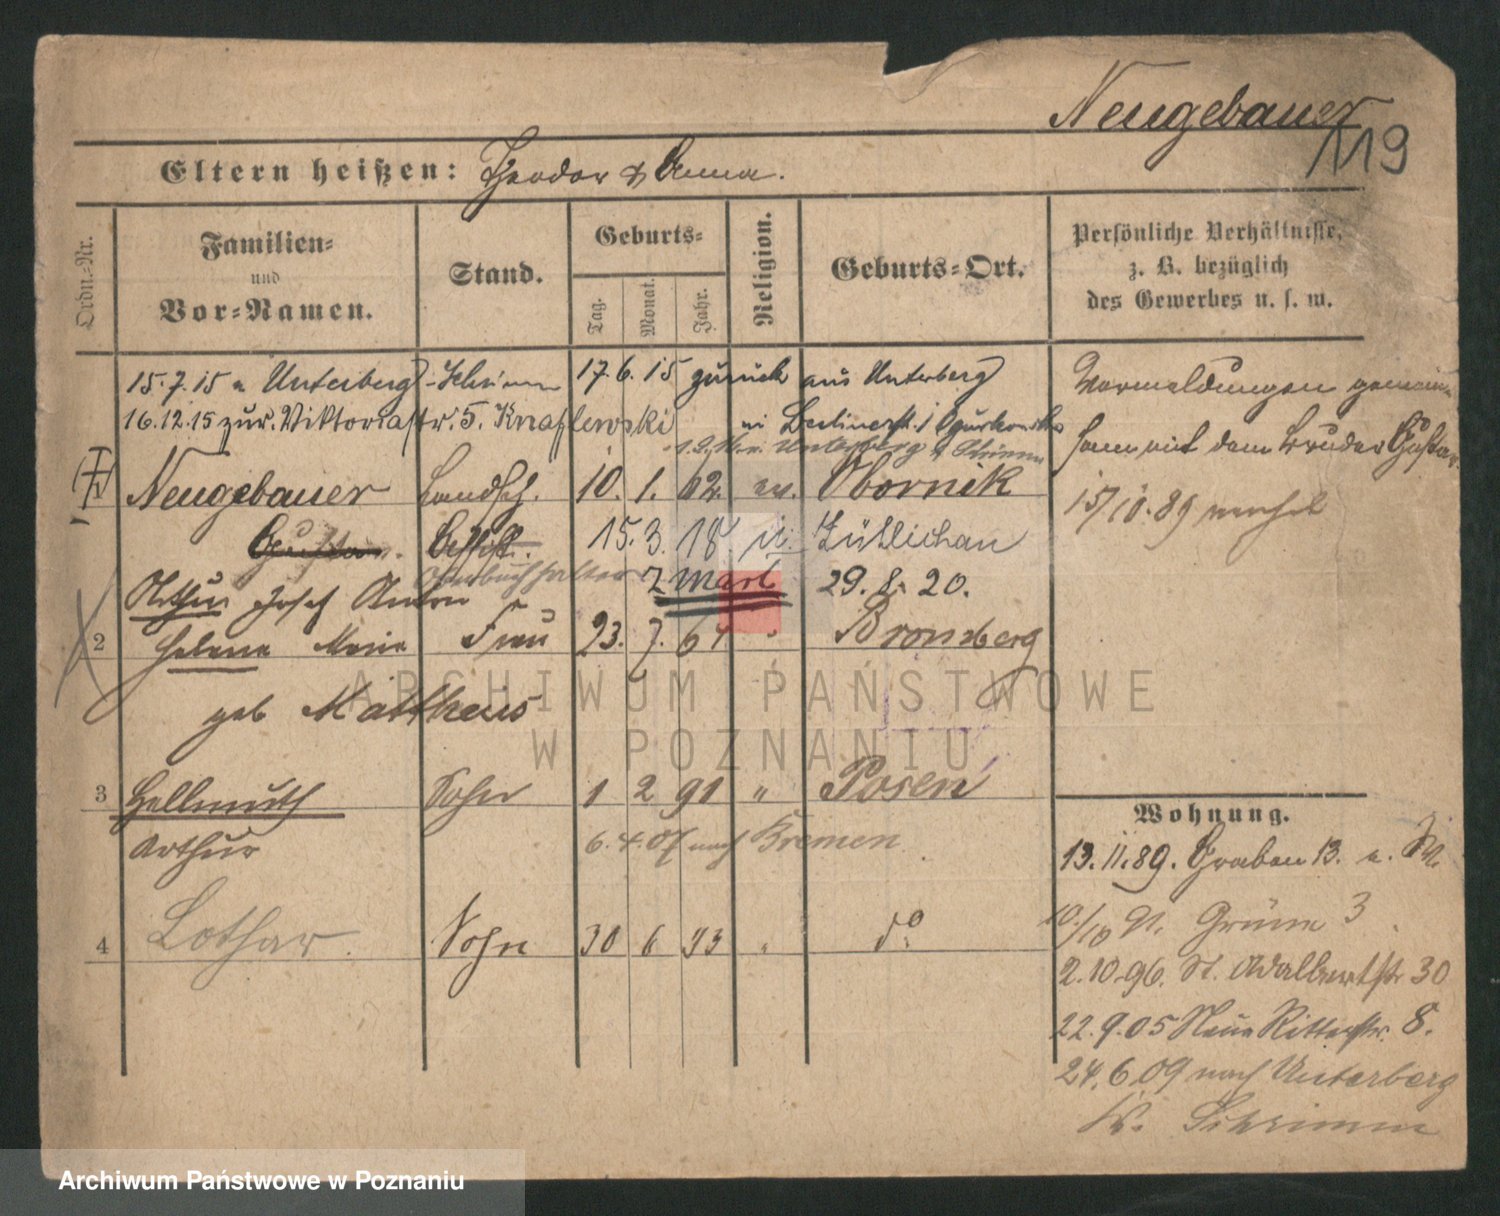 Neugebauer
119
Eltern heißen: Theodor & Anna.
Ordn.-Nr.
Familien-
und
Vor-Namen.
Stand.
Geburts-
Tag.
Monat.
Jahr.
Religion.
Geburts-Ort.
Persönliche Verhältnisse,
z. B. bezüglich
des Gewerbes u. s. w.
15.7.15 n Unterberg-Schrimm 17.6.15 zurück aus Unterberg
16.12.15 zur. Viktoriastr. 5. Knaflewski
Vormeldungen gemein-
sam mit dem Bruder Gustav
15/10.89
Neugebauer Landsch. 10. 1. 62. ev. Obornik
Gustav. 15. 3. 18 Züllichau
Oberbuchhalter
Arthur Josef Anton 2 Mark 29.8.20.
2 Helene Marie Frau 23. 7. 67 " Bromberg
geb Mattheus
3 Hellmuth Sohn 1 2 91 " Posen
Arthur 6.4.07 nach Bremen
4 Lothar. Sohn 30 6 93 " do
Wohnung.
13.11.89. Graben 13.
10/10 91. Grüne 3
2.10.96. St. Adalbertstr 30
22.9.05 Neue Ritterstr. 8.
24.6.09 nach Unterberg
Kr. Schrimm
ARCHIWUM PAŃSTWOWE
W POZNANIU
Archiwum Państwowe w Poznaniu